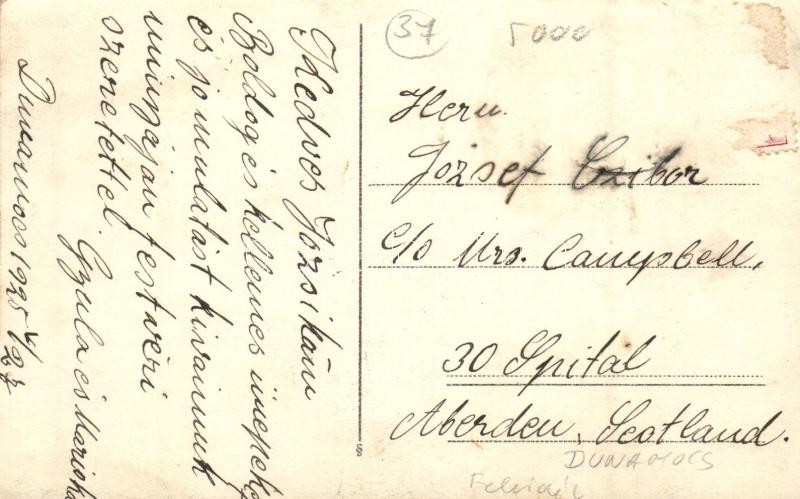 Kedves Józsikám
Boldog és kellemes ünnepeket
és jo mulatást kivánunk
mindnyájan testvéri
szeretettel. Gyula és Mariska
Dunamocs 1925 V/27
37
5000
Herrn.
Jozsef Czibor
c/o Mrs. Campbell,
30 Spital
Aberdeen, Scotland.
DUNAMOCS
Felvidék